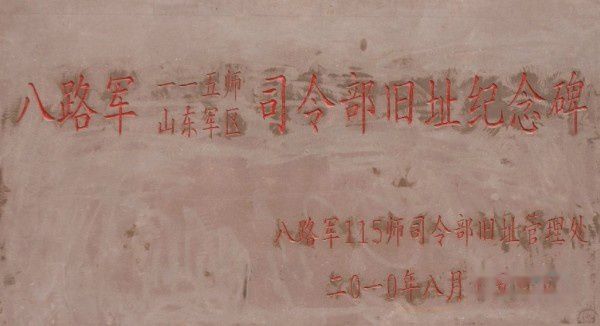 八路军 一一五师 山东军区 司令部旧址纪念碑
八路军115师司令部旧址管理处
二0一0年八月